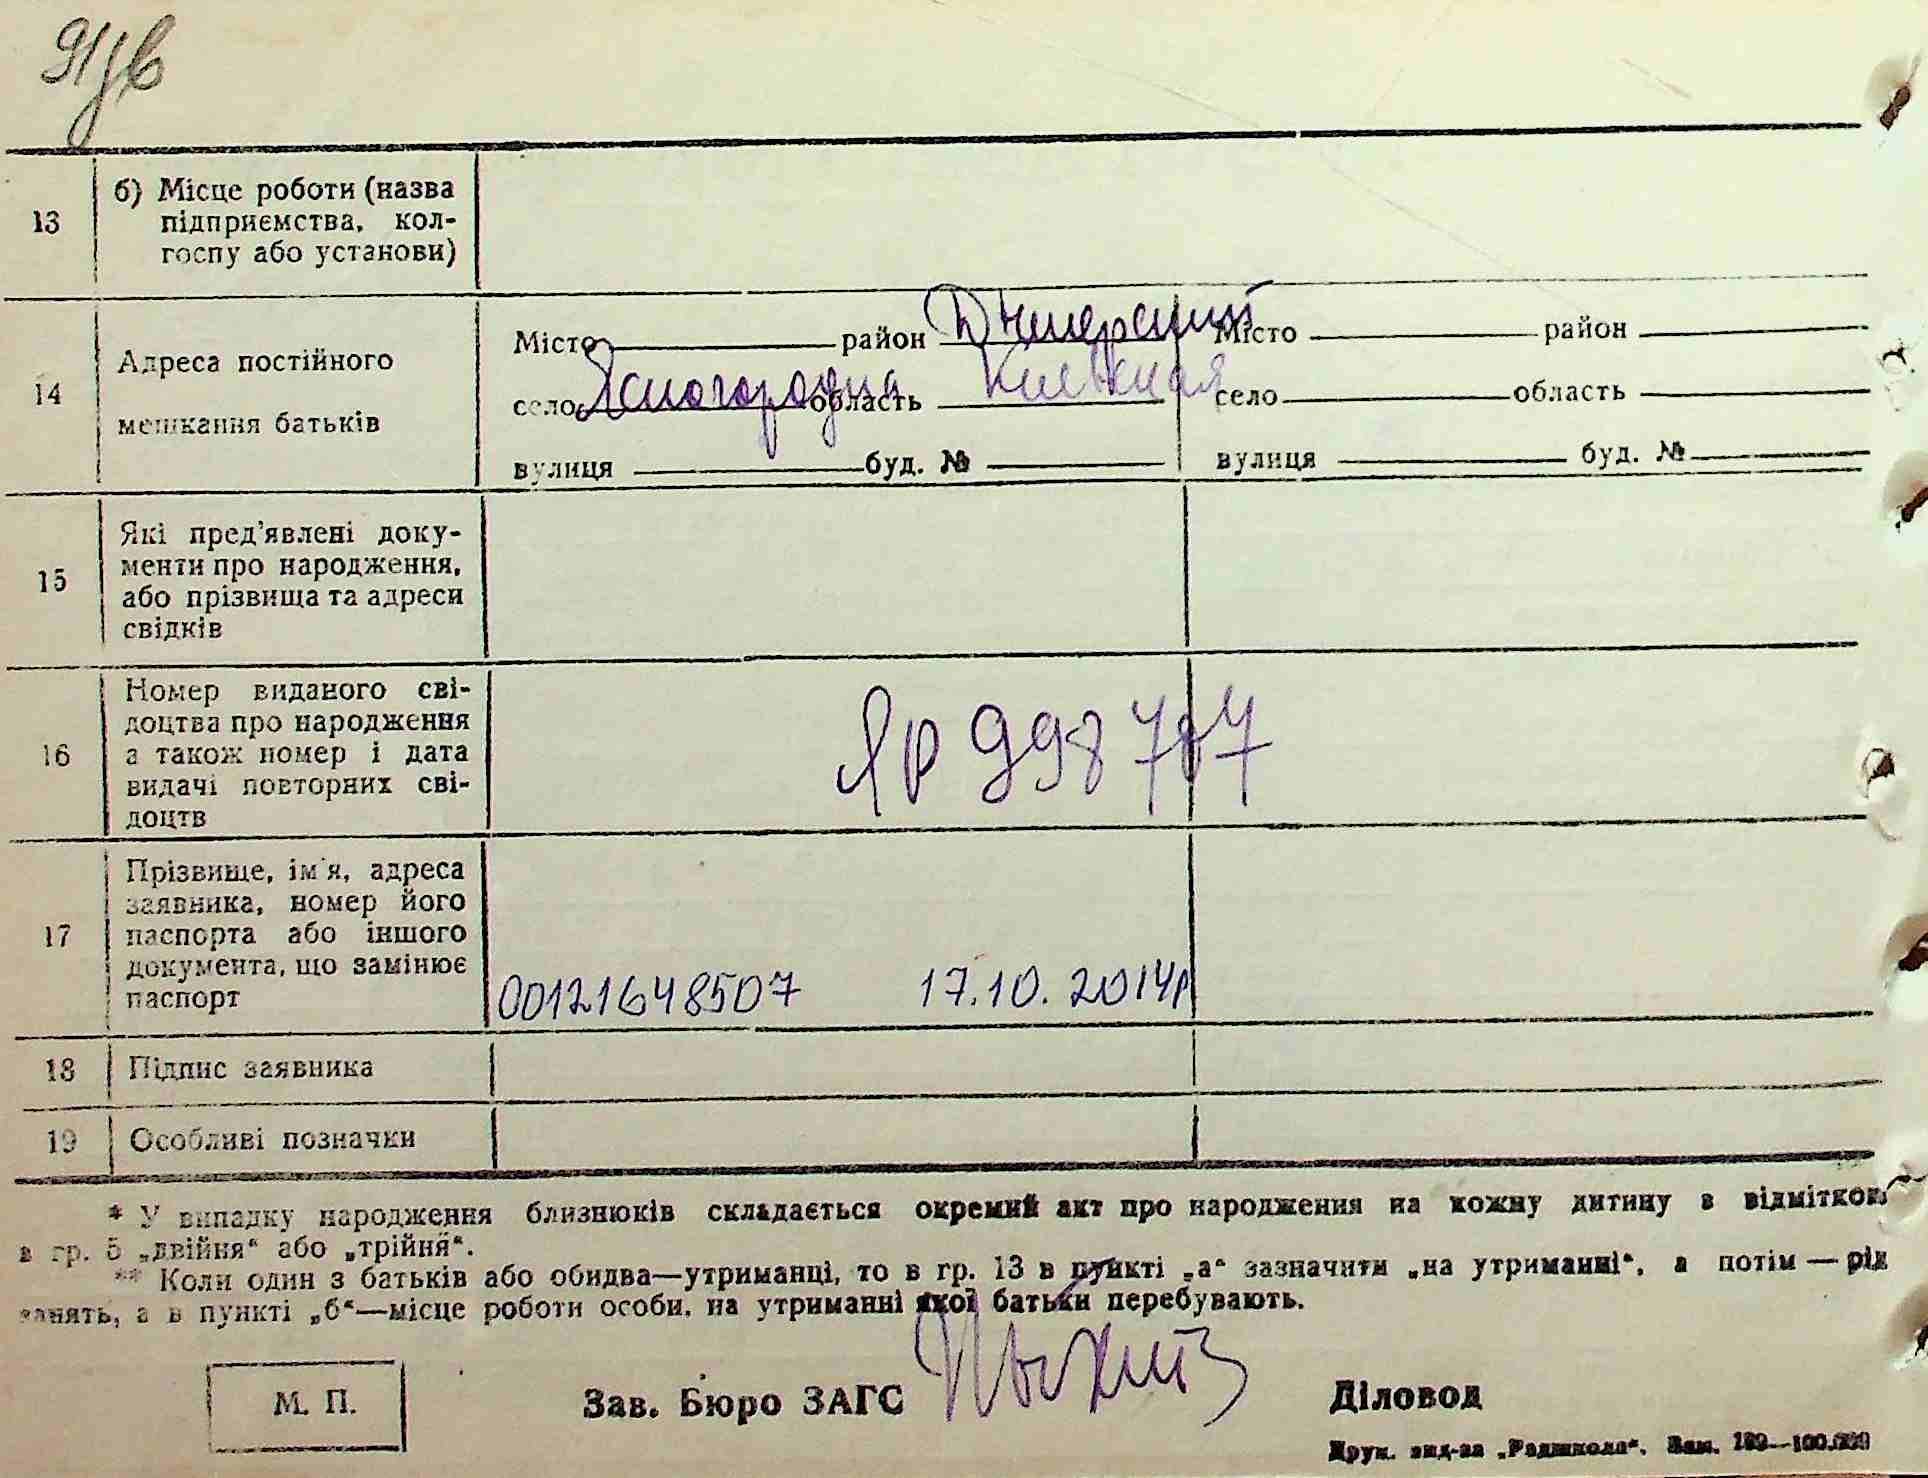 91зв
13
б) Місце роботи (назва
підприємства, кол-
госпу або установи)
14
Адреса постійного
мешкання батьків
Місто район Димерский
село Ясногородка область Киевская
вулиця буд. №
Місто район
село область
вулиця буд. №
15
Які пред'явлені доку-
менти про народження,
або прізвища та адреси
свідків
16
Номер виданого сві-
доцтва про народження
а також номер і дата
видачі повторних сві-
доцтв
ЯР 998
17
Прізвище, ім'я, адреса
заявника, номер його
паспорта або іншого
документа, що замінює
паспорт
00121648507 17.10.2014р
18
Підпис заявника
19
Особливі позначки
* У випадку народження близнюків складається окремий акт про народження на кожну дитину з відміткою
в гр. 5 „двійня“ або „трійня“.
** Коли один з батьків або обидва—утриманці, то в гр. 13 в пункті „а“ зазначити „на утриманні“, а потім — рід
занять, а в пункті „б“—місце роботи особи, на утриманні якої батьки перебувають.
М. П.
Зав. Бюро ЗАГС
Діловод
Друк. вид-ва „Радшкола“. Зам.